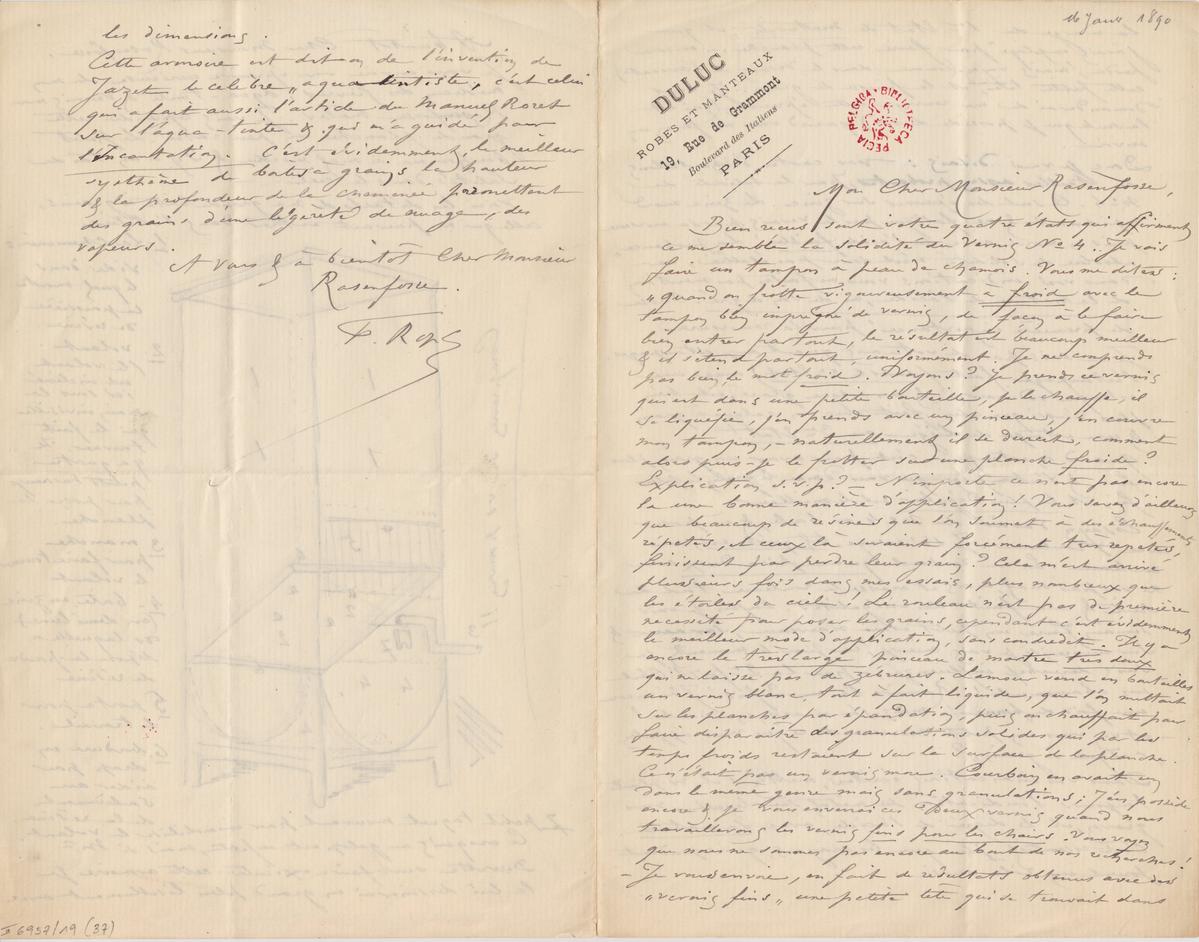 les dimensions.
Cette armoire est dit-on de l'invention de
Jazet le célèbre "aqua-tintiste, c'est celui
qui a fait aussi l'article du Manuel Roret
sur l'aqua-tinte & qui m'a guidé pour
l'Incantation. C'est évidemment le meilleur
systhème de boîtes à grains la hauteur
& la profondeur de la cheminée promettant
des grains d'une légèreté de nuage, des
vapeurs.
A vous & à bientôt Cher Monsieur
Rasenfosse.
F. Rops
II 6957/19 (37)
16 Janv 1890
DULUC
ROBES ET MANTEAUX
19, Rue de Grammont
Boulevard des Italiens
PARIS
BIBLIOTHECA REGIA BELGICA
Mon Cher Monsieur Rasenfosse,
Bien reçus sont votre quatre états qui affirment
ce me semble la solidité du Vernis No 4. Je vais
faire un tampon à peau de chamois. Vous me dites:
"quand on frotte vigoureusement à froid avec le
tampon bien imprégné de vernis, de façon à le faire
bien entrer partout, le résultat est beaucoup meilleur
& il s'étend partout, uniformément. Je ne comprends
pas bien le mot froid. Voyons? Je prends ce vernis
qui est dans une petite bouteille, je le chauffe, il
se liquéfie, j'en prends avec un pinceau, j'en couvre
mon tampon, – naturellement il se durcit, comment
alors puis-je le frotter sur une planche froide?
Explication s.v.p.? – N'importe ce n'est pas encore
là une bonne manière d'application! Vous savez d'ailleurs
que beaucoup de résines que l'on soumet à des échauffements
répétés, et ceux là seraient forcément très répétés,
finissent par perdre leur grain? Cela m'est arrivé
plusieurs fois dans mes essais, plus nombreux que
les étoiles du ciel! Le rouleau n'est pas de première
necessité pour poser les grains, cependant c'est évidemment
le meilleur mode d'application, sans contredit. Il y a
encore le très large pinceau de martre très doux
qui ne laisse pas de zébrures. Lamour vend en bouteilles
un vernis blanc, tout à fait liquide, que l'on mettait
sur les planches par épandation, puis on chauffait pour
faire disparaître des granulations solides qui par les
temps froids restaient sur la surface de la planche.
Ce n'était pas un vernis mou. Courboin en avait un
dans le même genre mais sans granulations; J'en possède
encore & je vous enverrai ces Deux vernis quand nous
travaillerons les vernis fins pour les chairs. Vous voyez
que nous ne sommes pas encore au bout de nos recherches!
– Je vous envoie, en fait de résultats obtenus avec des
"vernis fins" une petite tête qui se trouvait dans